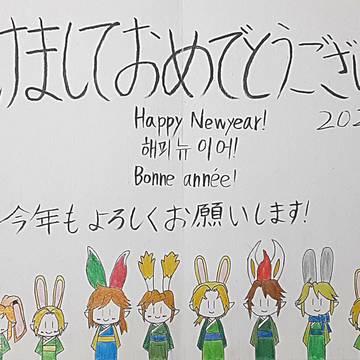 けましておめでとうござい
Happy Newyear! 202
해피 뉴 이어!
Bonne année!
今年もよろしくお願いします!